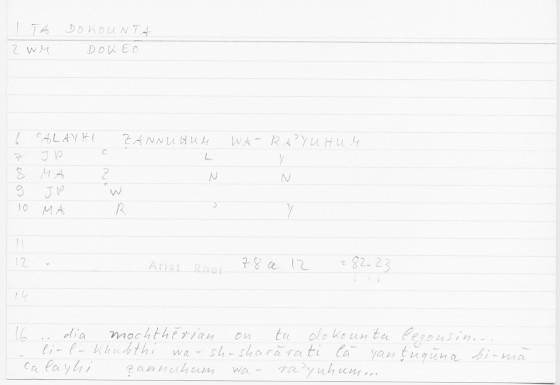 1 TA DOKOUNTA
2 WM DOKEO
6 ʿALAYHI ẒANNUHUM WA-RAʾYUHUM
7 JP ʿ L Y
8 MA Ẓ N N
9 JP W
10 MA R ʾ Y
11
12 . Arist Rhet 78a 12 =82.23
14
16 .. dia mochthērian ou ta dokounta legousin...
. li-l-khubthi wa-sh-sharārati lā yanṭuqūna bi-mā
ʿalayhi ẓannuhum wa-raʾyuhum...